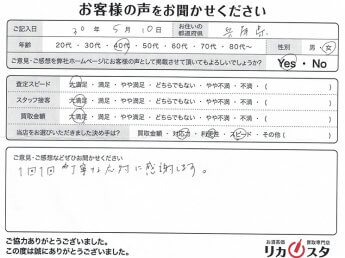 お客様の声をお聞かせください
ご記入日 30年 5月 10日 お住いの都道府県 兵庫県
年齢 20代・30代・40代・50代・60代・70代・80代〜 性別 男・女
ご意見・ご感想を弊社ホームページにお客様の声として掲載させて頂いてもよろしいでしょうか? Yes・No
査定スピード 大満足・満足・やや満足・どちらでもない・やや不満・不満・( )
スタッフ接客 大満足・満足・やや満足・どちらでもない・やや不満・不満・( )
買取金額 大満足・満足・やや満足・どちらでもない・やや不満・不満・( )
当店をお選びいただきました決め手は? 買取金額・対応力・利便性・スピード・その他( )
ご意見・ご感想などぜひお聞かせください
1回1回 丁寧な対応に感謝します。
ご協力ありがとうございました。
この度は誠にありがとうございました。
お酒高価買取専門店
リカスタ